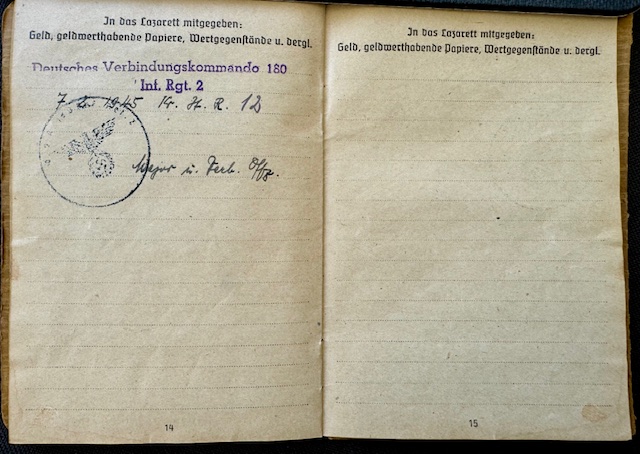 In das Lazarett mitgegeben:
Geld, geldwerthabende Papiere, Wertgegenstände u. dergl.
Deutsches Verbindungskommando 180
Inf. Rgt. 2
1945 12
Major u. Verb. Offz.
14
In das Lazarett mitgegeben:
Geld, geldwerthabende Papiere, Wertgegenstände u. dergl.
15